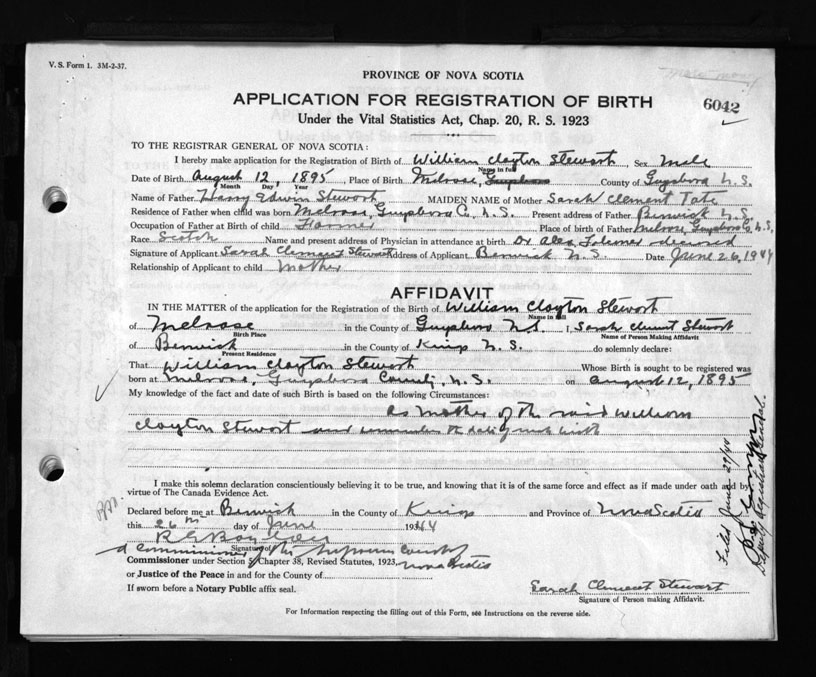 V. S. Form 1. 3M-2-37.
PROVINCE OF NOVA SCOTIA
APPLICATION FOR REGISTRATION OF BIRTH
6042
Under the Vital Statistics Act, Chap. 20, R. S. 1923
TO THE REGISTRAR GENERAL OF NOVA SCOTIA:
I hereby make application for the Registration of Birth of William Clayton Stewart, Sex Male
Name in full
Date of Birth August 12, 1895 Place of Birth Melrose, Guysboro County of Guysboro N.S.
Month Day Year
Name of Father Harry Edwin Stewart MAIDEN NAME of Mother Sarah Clement Tate
Residence of Father when child was born Melrose, Guysboro Co, N.S. Present address of Father Berwick N.S.
Occupation of Father at Birth of child Farmer Place of birth of Father Melrose, Guysboro Co, N.S.
Race Scotch Name and present address of Physician in attendance at birth Dr deceased
Signature of Applicant Sarah Clement Stewart Address of Applicant Berwick N.S. Date June 26, 1944
Relationship of Applicant to child Mother
AFFIDAVIT
IN THE MATTER of the application for the Registration of the Birth of William Clayton Stewart
Name in full
of Melrose in the County of Guysboro N.S. I, Sarah Clement Stewart
Birth Place Name of Person Making Affidavit
of Berwick in the County of Kings N.S. do solemnly declare:
Present Residence
That William Clayton Stewart Whose Birth is sought to be registered was
born at Melrose, Guysboro County, N.S. on August 12, 1895
My knowledge of the fact and date of such Birth is based on the following Circumstances:
as mother of the said William
Clayton Stewart and remember the date of such birth
I make this solemn declaration conscientiously believing it to be true, and knowing that it is of the same force and effect as if made under oath and by
virtue of The Canada Evidence Act.
Declared before me at Berwick in the County of Kings and Province of Nova Scotia
this 26th day of June 1944
Signature of
a Commissioner of the Supreme Court of
Commissioner under Section 5, Chapter 38, Revised Statutes, 1923, Nova Scotia
or Justice of the Peace in and for the County of
If sworn before a Notary Public affix seal.
Sarah Clement Stewart
Signature of Person making Affidavit.
For Information respecting the filling out of this Form, see Instructions on the reverse side.
Filed June 29/44
Deputy Registrar General.